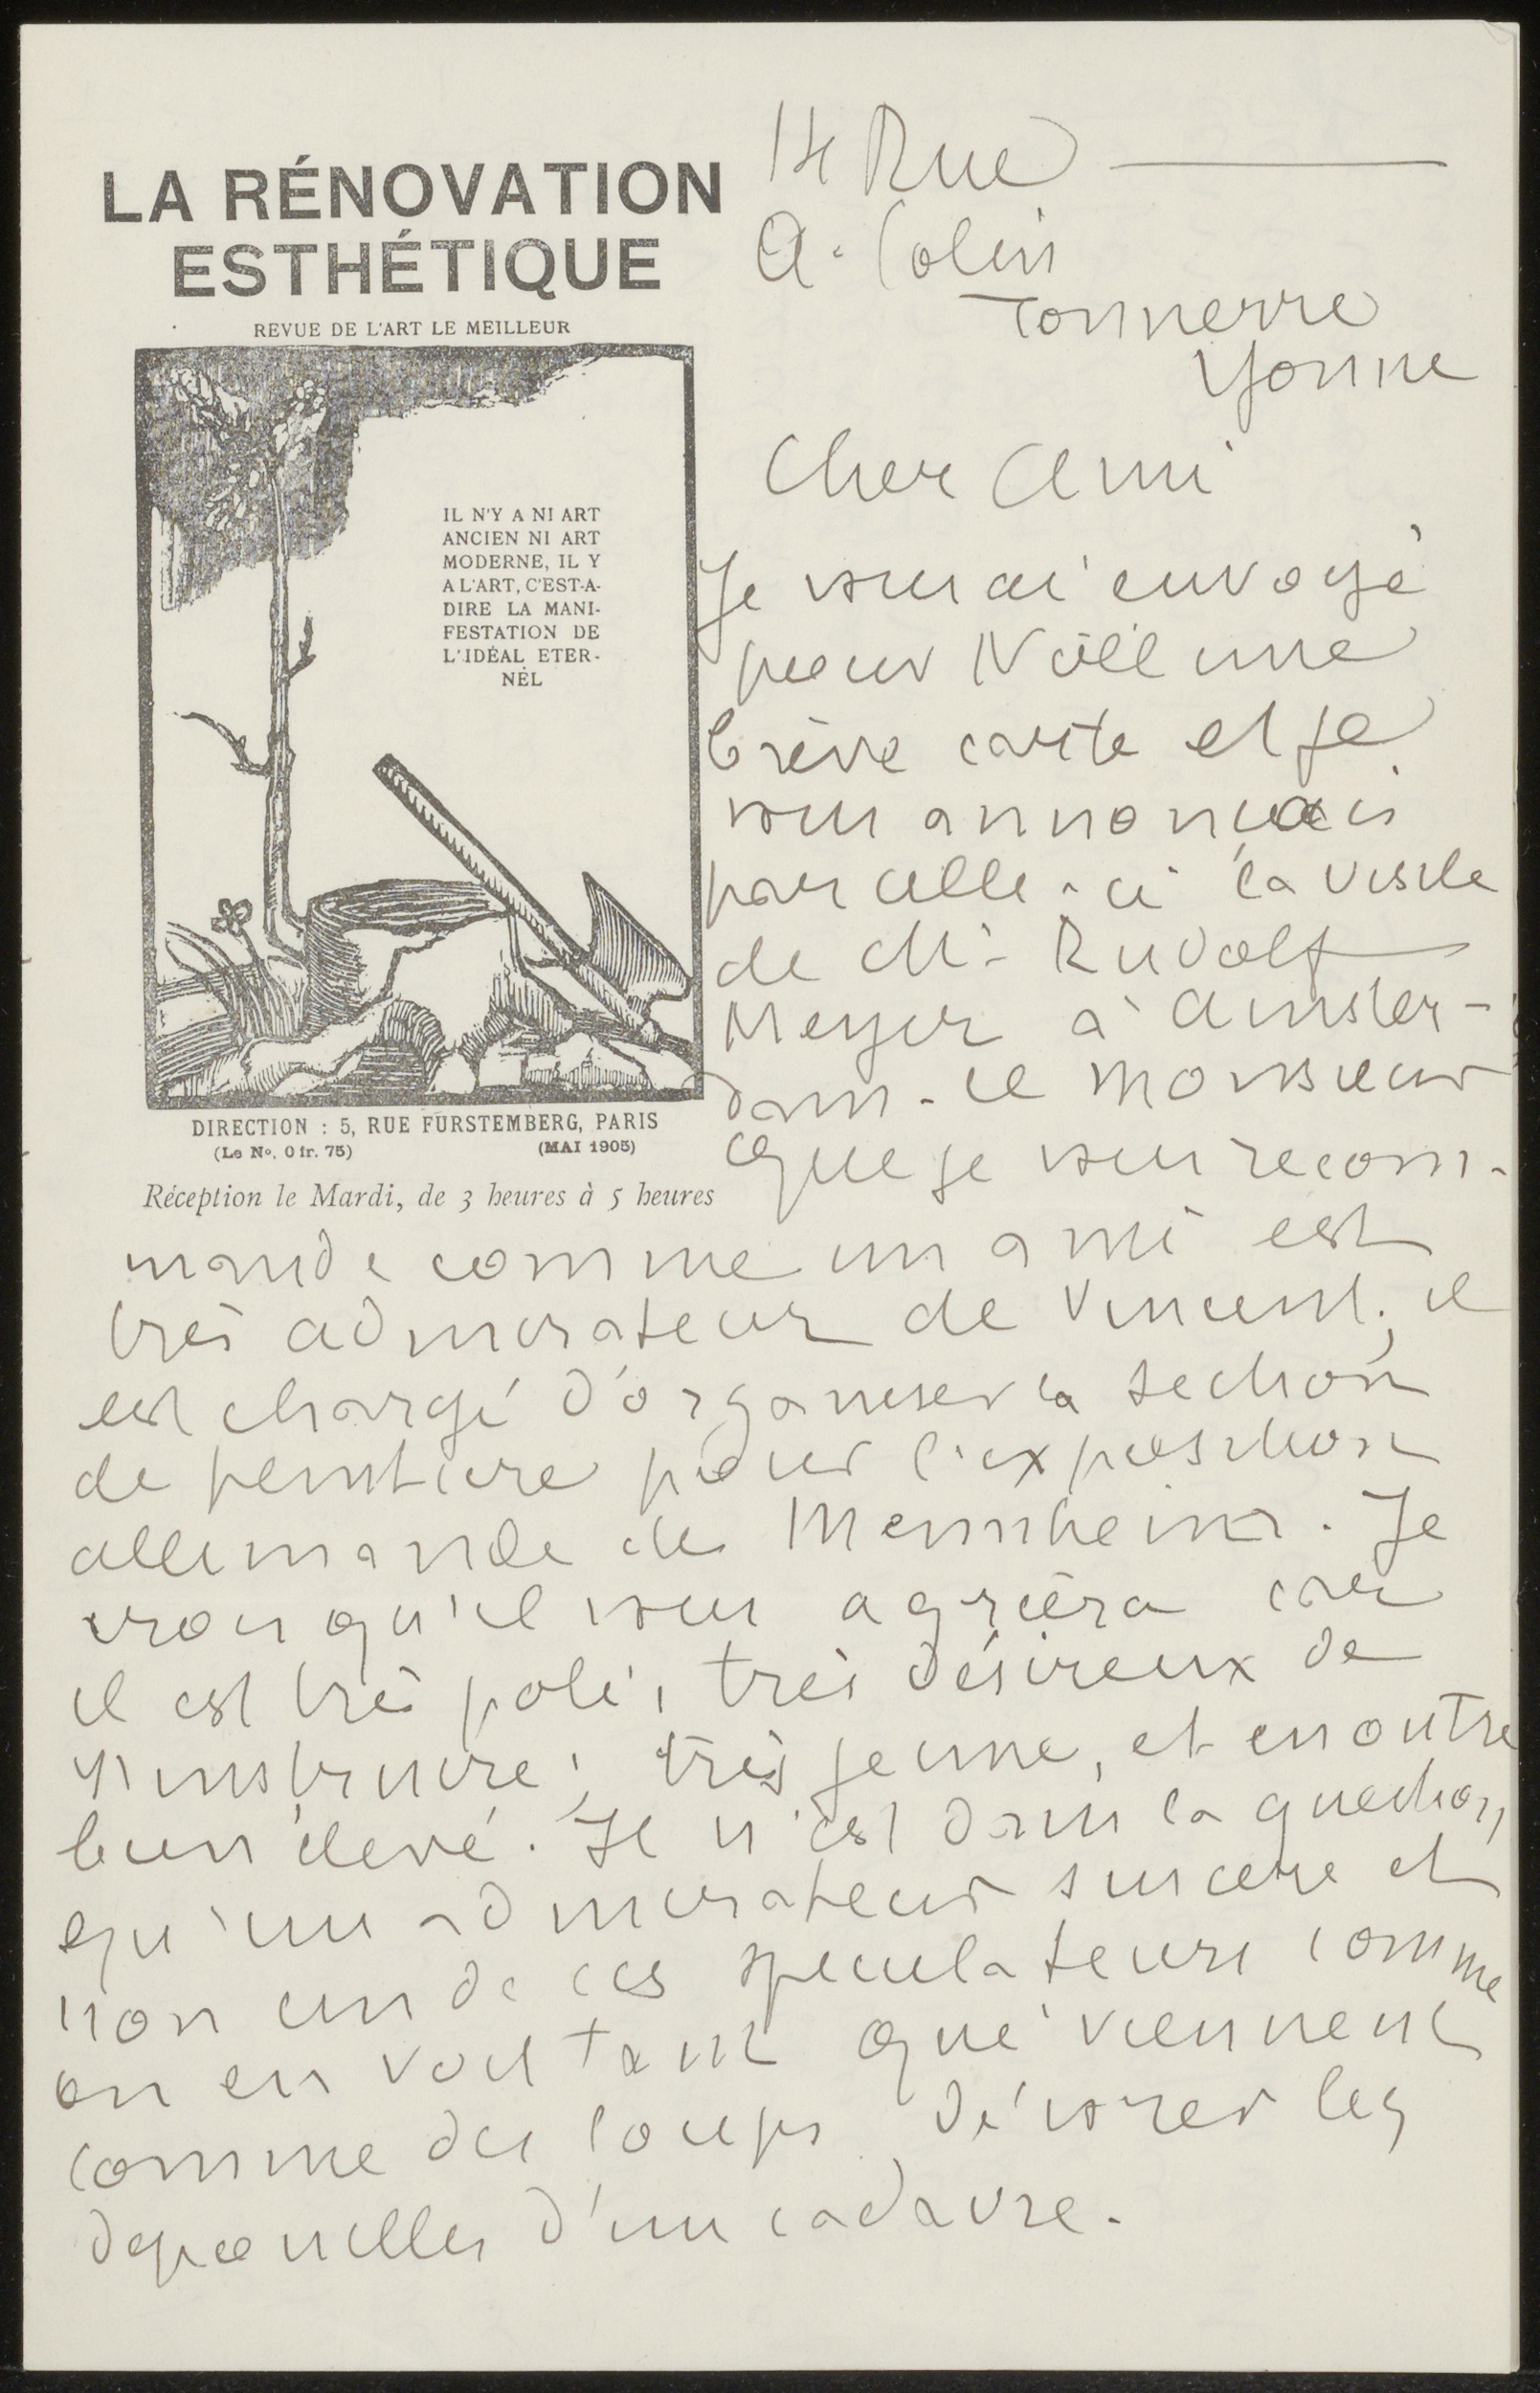 LA RÉNOVATION
ESTHÉTIQUE
REVUE DE L'ART LE MEILLEUR
IL N'Y A NI ART
ANCIEN NI ART
MODERNE, IL Y
A L'ART, C'EST-A-
DIRE LA MANI-
FESTATION DE
L'IDÉAL ETER-
NEL
DIRECTION : 5, RUE FURSTEMBERG, PARIS
(Le No. 0 fr. 75) (MAI 1905)
Réception le Mardi, de 3 heures à 5 heures
14 Rue
A. Colin
Tonnerre
Yonne
Cher Ami
Je vous ai envoyé
pour Noël une
brève carte et je
vous annonçais
par celle-ci la visite
de Mr Rudolf
Meyer à Amster-
dam. Ce monsieur
que je vous recom-
mande comme un ami est
très admirateur de Vincent, il
est chargé d'organiser la section
de peinture pour l'exposition
allemande de Mennheim. Je
crois qu'il vous agréera car
il est très poli, très désireux de
s'instruire, très jeune, et en outre
bien élevé. Il n'est dans la question
qu'un admirateur sincère et
non un de ces speculateurs comme
on en voit tant que viennent
comme des loups dévorer les
depouilles d'un cadavre.